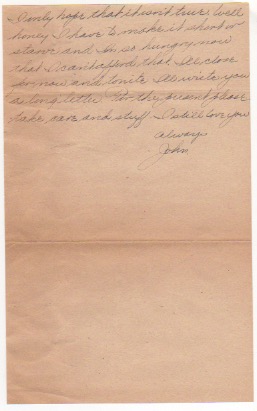 I only hope that it isn't true. Well
honey I have to make it short or
starve and I'm so hungry now
that I can't afford that. I'll close
for now and tonite I'll write you
a long letter. For the present please
take care and stuff. I still love you
always
John